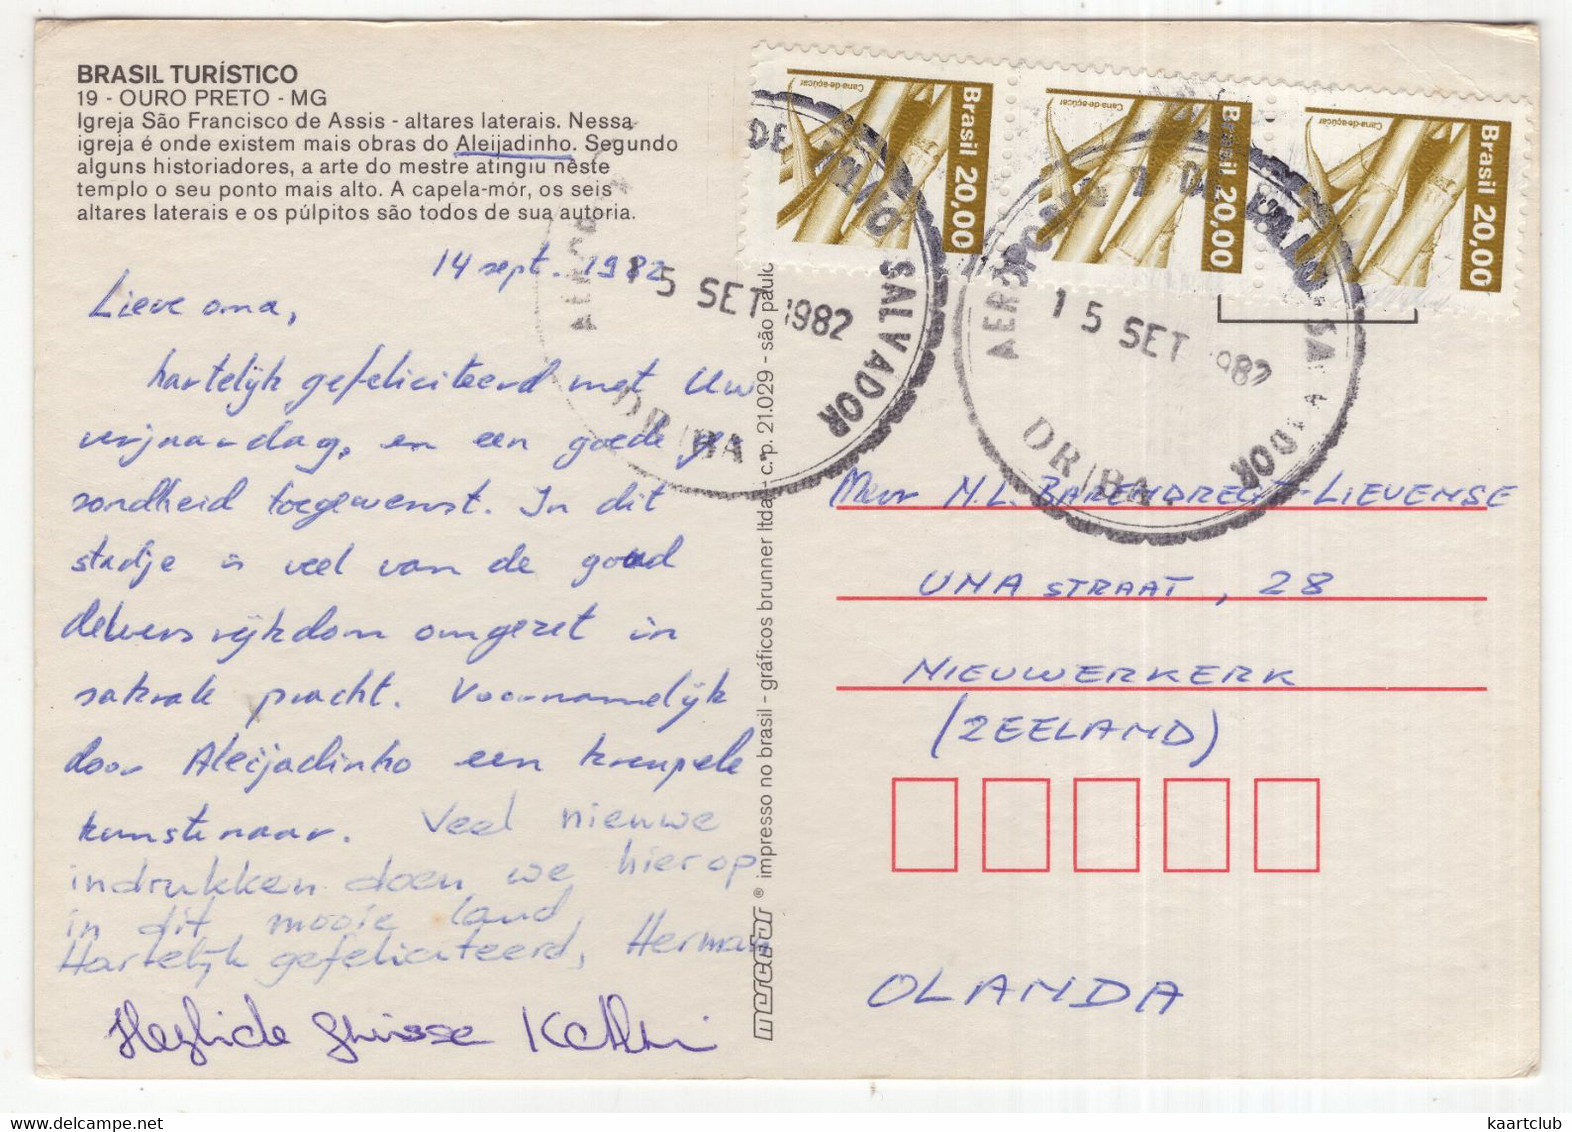 BRASIL TURÍSTICO
19 - OURO PRETO - MG
Igreja São Francisco de Assis - altares laterais. Nessa
igreja é onde existem mais obras do Aleijadinho. Segundo
alguns historiadores, a arte do mestre atingiu nêste
templo o seu ponto mais alto. A capela-mór, os seis
altares laterais e os púlpitos são todos de sua autoria.
14 sept. 1982
Lieve oma,
hartelijk gefeliciteerd met Uw
verjaardag, en een goede ge
zondheid toegewenst. In dit
stadje is veel van de goud
delvers rijkdom omgezet in
sakrale pracht. Voornamelijk
door Aleijadinho een kreupele
kunstenaar. Veel nieuwe
indrukken doen we hier op
in dit mooie land,
Hartelijk gefeliciteerd, Herman
Herzliche Grüsse Kathrin
mercator ® impresso no brasil - gráficos brunner ltda. - c.p. 21.029 - são paulo
Brasil 20,00
Cana-de-açúcar
Brasil 20,00
Cana-de-açúcar
Brasil 20,00
Cana-de-açúcar
SALVADOR
15 SET 1982
DR/BA
AEROPORTO
15 SET 1982
DR/BA
Mevr M.L. BARENDREGT-LIEVENSE
UNA STRAAT, 28
NIEUWERKERK
(ZEELAND)
OLANDA
kaartclub